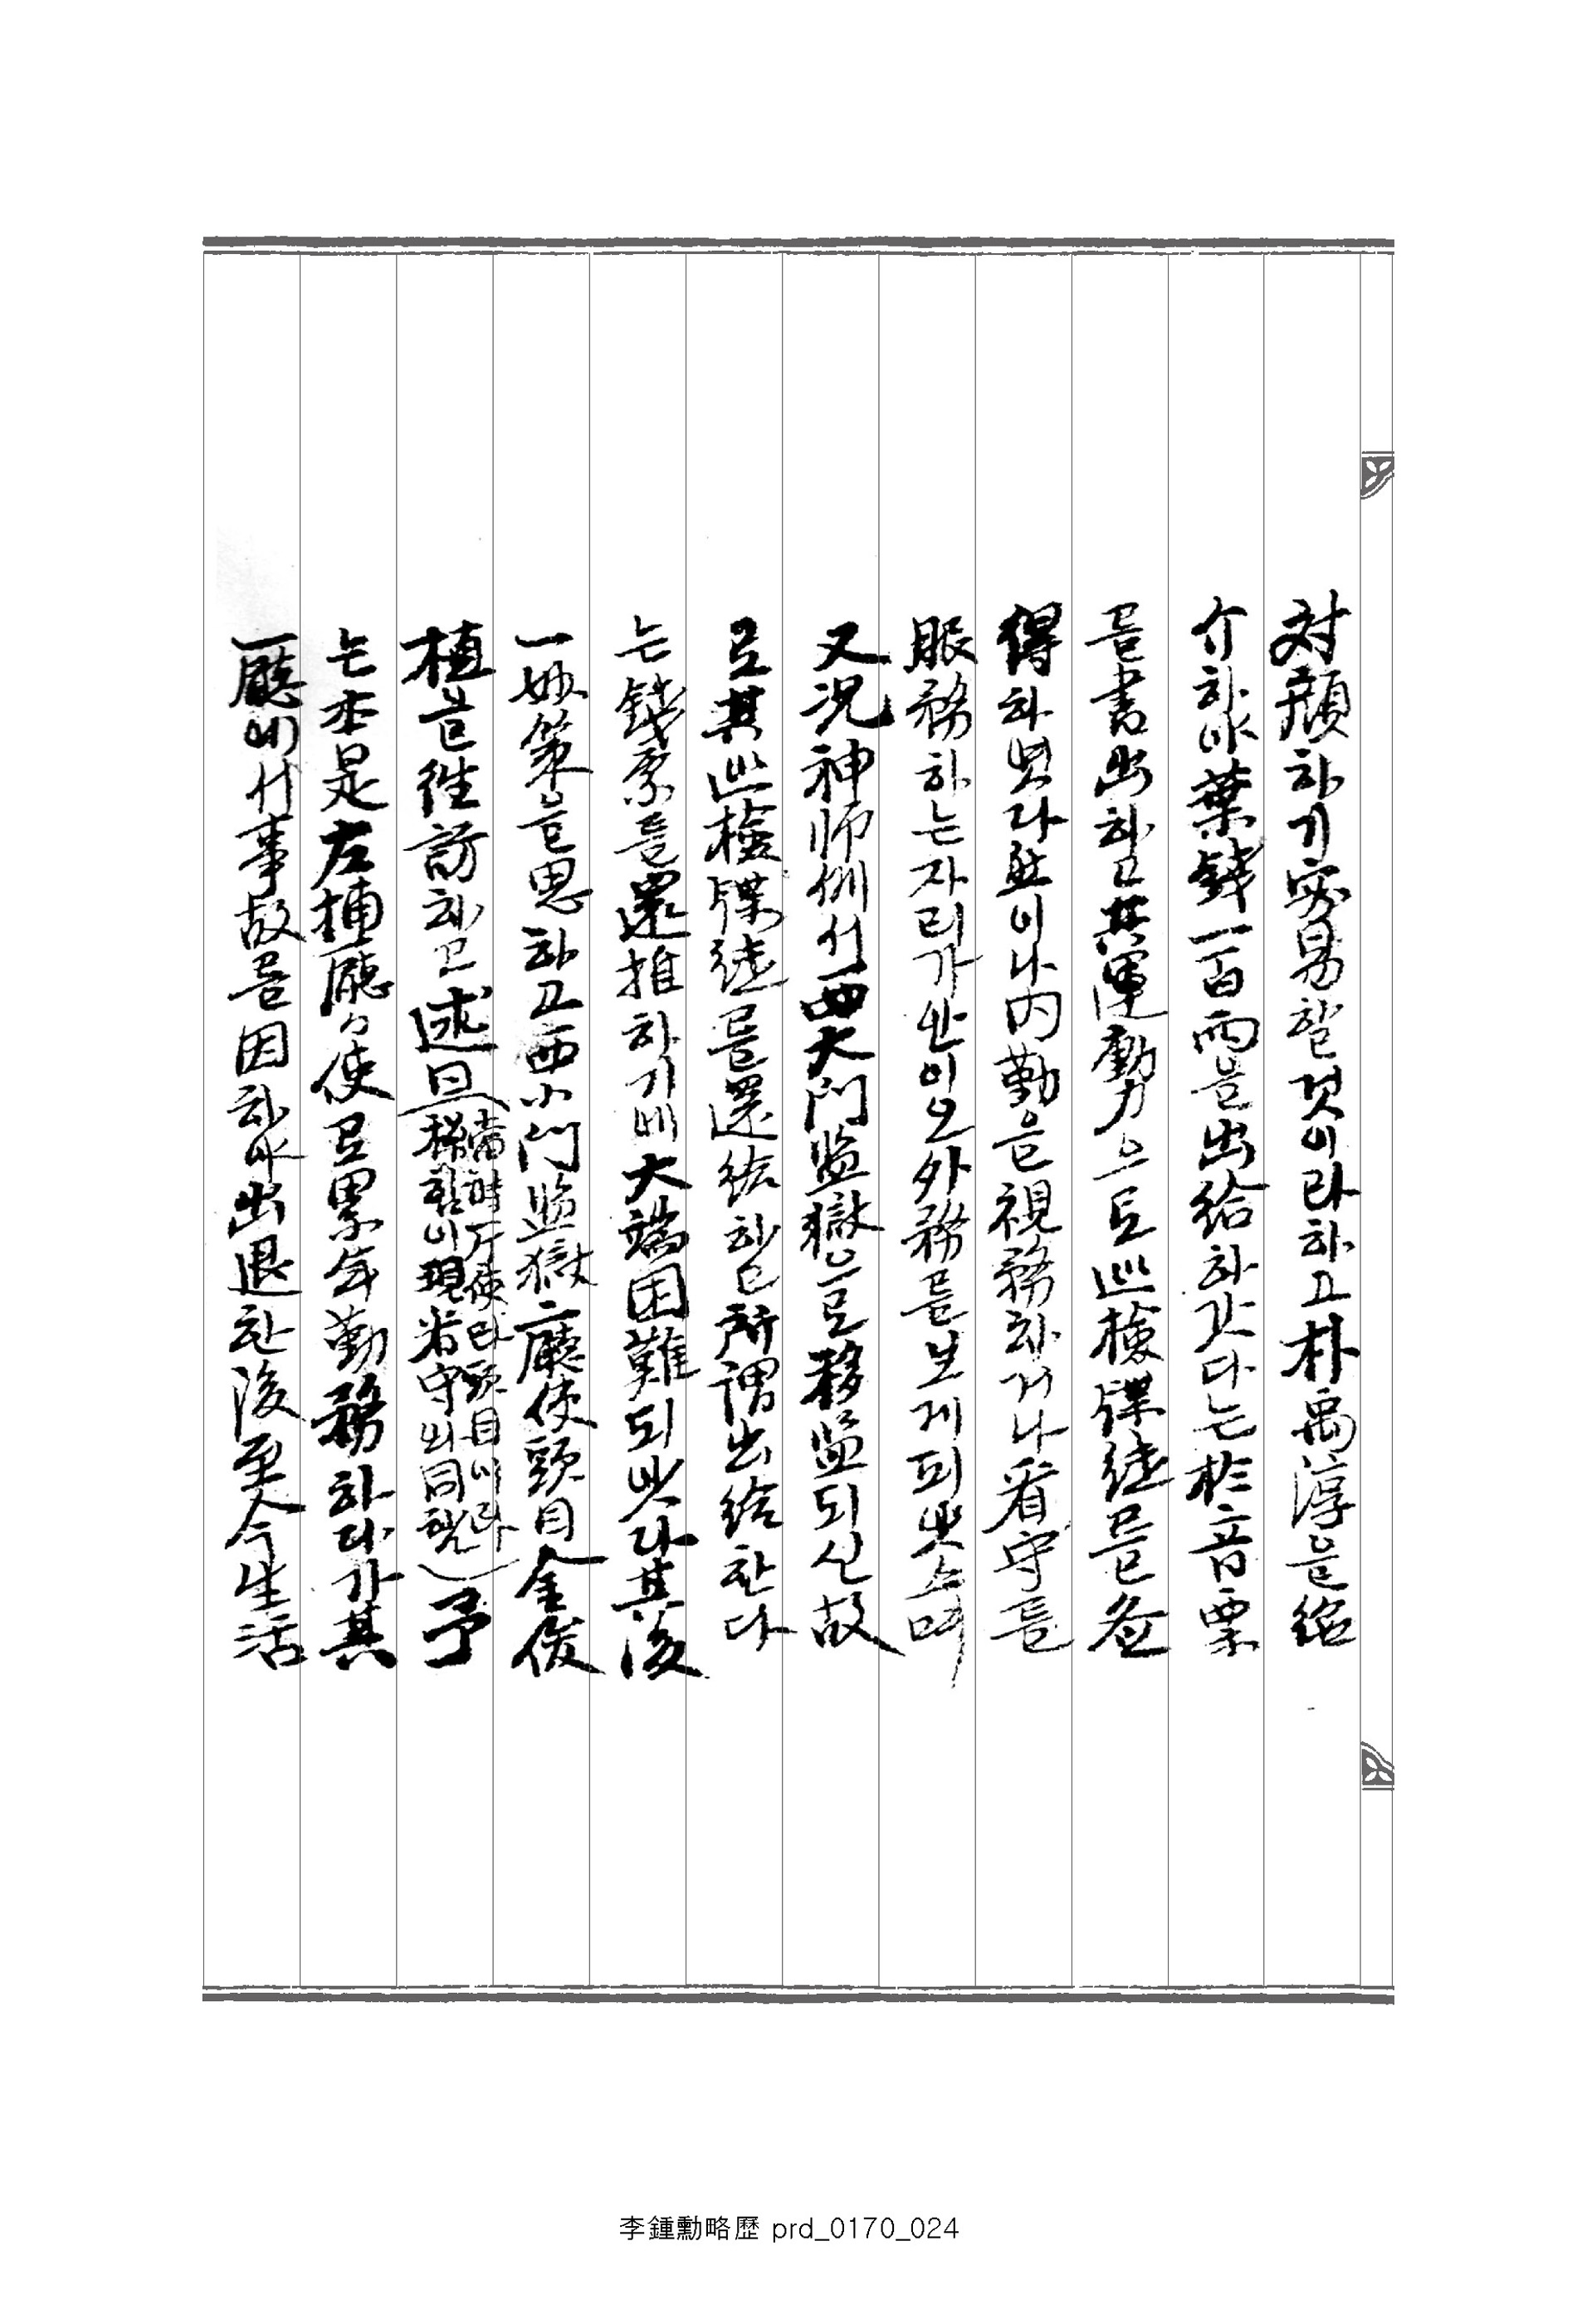 対顔하기容易할것이라하고朴禹淳은紹
介하야葉錢一百兩을出給하갓다는於音票
를書出하고其運動力으로巡檢牒紙를圖
得하얏다然이나內勤은視務하거나看守등
服務하는자리가안이오外務를보게되얏스며
又況神師세서西大門監獄으로移監되신故
로其巡檢牒紙를還給하고所謂出給한다
는錢票를還推하기에大端困難되얏다其後
一妙策을思하고西小門監獄二廳使頭目金俊
植을往訪하고述旦(當時庁使라頭目이라
稱함이現看守出同親)予
는本是左捕廳々使로累年勤務하다가其
廳에서事故를因하야出退한後至今生活
李鍾勳略歷 prd_0170_024